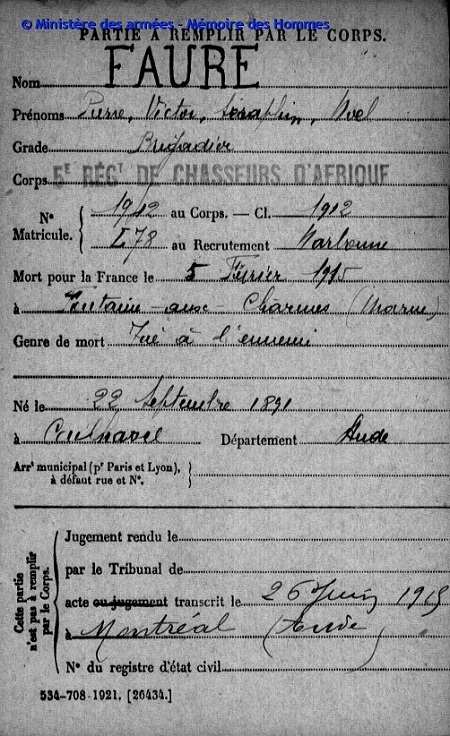 © Ministère des armées - Mémoire des Hommes
PARTIE À REMPLIR PAR LE CORPS.
Nom FAURE
Prénoms Pierre, Victor, Séraphin, Noel
Grade Brigadier
Corps 5E RÉGT DE CHASSEURS D'AFRIQUE
No 1912 au Corps. — Cl. 1912
Matricule. 478 au Recrutement Narbonne
Mort pour la France le 5 Février 1915
à Fontaine-aux-Charmes (Marne)
Genre de mort Tué à l'ennemi
Né le 22 Septembre 1891
à Département Aude
Arrt municipal (pr Paris et Lyon),
à défaut rue et No.
Cette partie
n'est pas à remplir
par le Corps.
Jugement rendu le
par le Tribunal de
acte ou jugement transcrit le 26 Juin 1915
à Montréal (Aude)
No du registre d'état civil
534-708-1921. [26434.]